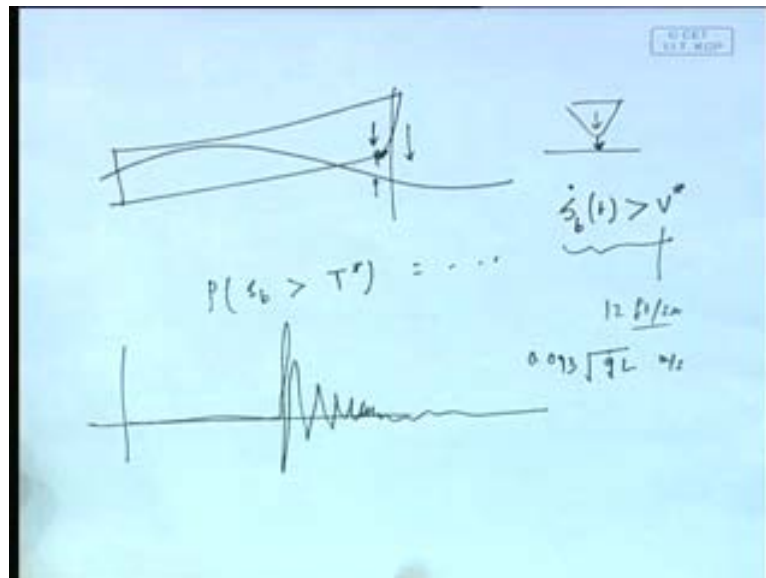 © CET
I.I.T. KGP
ṡ_b(t) > V*
P(s_b > T*) = ....
12 ft/sec
0.093 √gL m/s